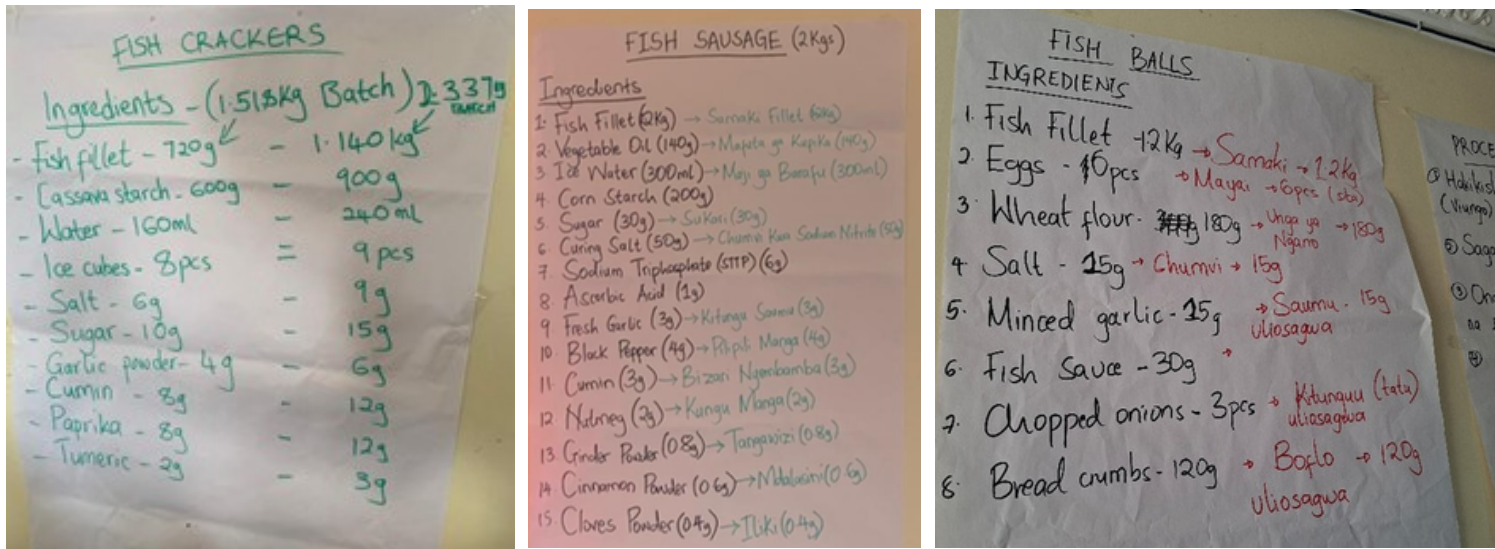 FISH CRACKERS
Ingredients - (1.518Kg Batch) 2.337g
BATCH
- Fish fillet - 720g - 1.140kg
- Cassava starch - 600g - 900g
- Water - 160ml - 240ml
- Ice cubes - 8pcs = 9pcs
- Salt - 6g - 9g
- Sugar - 10g - 15g
- Garlic powder - 4g - 6g
- Cumin - 8g - 12g
- Paprika - 8g - 12g
- Tumeric - 2g - 3g
FISH SAUSAGE (2Kgs)
Ingredients
1. Fish Fillet (2Kg) → Samaki Fillet (2Kg)
2. Vegetable Oil (140g) → Mafuta ya Kupika (140g)
3. Ice Water (300ml) → Maji ya Barafu (300ml)
4. Corn Starch (200g)
5. Sugar (30g) → Sukari (30g)
6. Curing Salt (50g) → Chumvi Kwa Sodium Nitrite (50g)
7. Sodium Triphosphate (STTP) (6g)
8. Ascorbic Acid (1g)
9. Fresh Garlic (3g) → Kitunga Saumu (3g)
10. Black Pepper (4g) → Pilipili Manga (4g)
11. Cumin (3g) → Bizari Nyembamba (3g)
12. Nutmeg (2g) → Kungu Manga (2g)
13. Ginder Powder (0.8g) → Tangawizi (0.8g)
14. Cinnamon Powder (0.6g) → Mdalasini (0.6g)
15. Cloves Powder (0.4g) → Iliki (0.4g)
FISH BALLS
INGREDIENTS
1. Fish Fillet - 1.2Kg → Samaki → 1.2Kg
2. Eggs - 6pcs → Mayai → 6pcs (sita)
3. Wheat flour - 180g → Unga ya Ngano → 180g
4 Salt - 15g → Chumvi → 15g
5. Minced garlic - 15g → Saumu - 15g
uliosagwa
6. Fish Sauce - 30g →
7. Chopped onions - 3pcs → Kitunguu (tatu)
uliosagwa
8. Bread crumbs - 120g → Boflo → 120g
uliosagwa
PROCE
① Hakikish
(Viungo)
② Saga
③
na
④